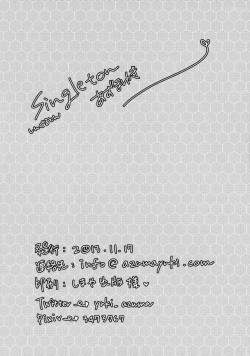 Singleton
あずまゆき
発行：2017.11.17
連絡先：info@azumayuki.com
印刷：しまや出版様♥
Twitter → yuki_azuma
Pixiv → 3473767